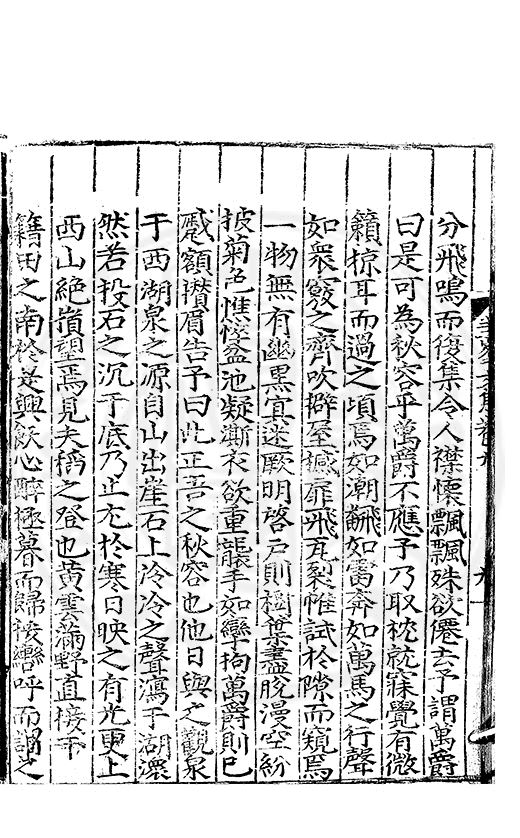 分飛鳴而復集令人襟懷飄飄殊欲僊去予謂萬爵
曰是可為秋容乎萬爵不應予乃取枕就寐覺有微
籟掠耳而過之頃焉如潮翻如雷奔如萬馬之行聲
如衆竅之齊吹擗屋撼扉飛瓦裂惟試於隙而窺焉
一物無有幽黑寘迷厥明啓戶則樹葉盡脫漫空紛
披菊色憔悴盆池凝澌衣欲重襲手如攣拘萬爵則已
蹙額攢眉告予曰此正吾之秋容也他日與之觀泉
于西湖泉之源自山出崖石上泠泠之聲瀉于湖瀤
然若投石之沉于底乃止尤於寒日映之有光更上
西山絶嶺望焉見夫稻之登也黃雲滿野直接乎
籍田之南於是興飲心醉極暮而歸後轡呼而謂之
九